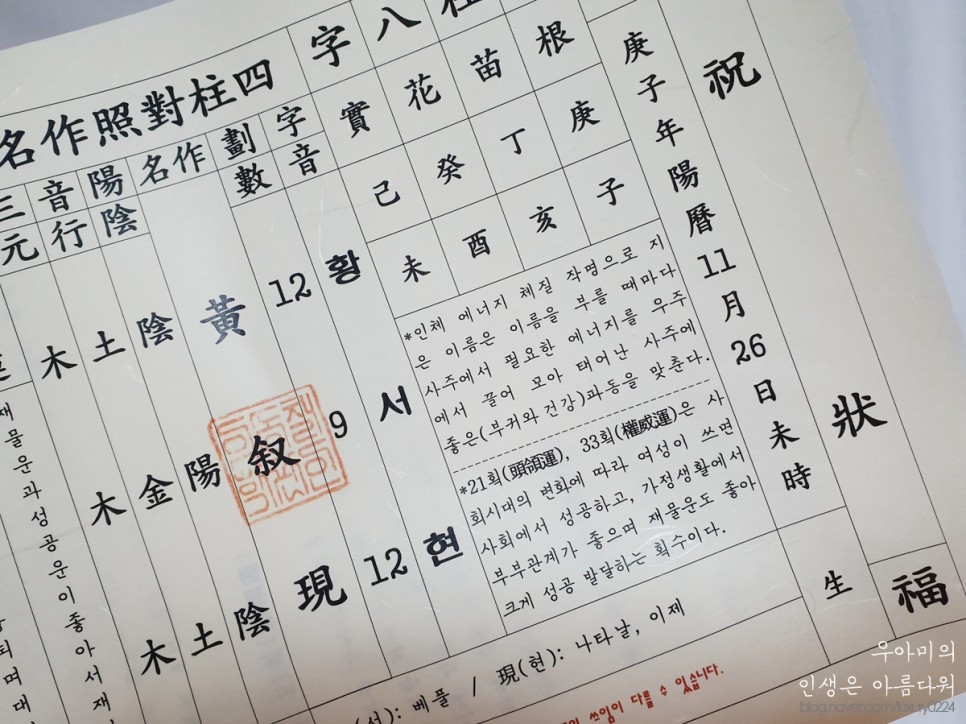 祝
狀
福
庚子年陽曆11月26日未時
生
八
字
根
苗
花
實
庚
丁
癸
己
子
亥
酉
未
*인체 에너지 체질 작명으로 지
은 이름은 이름을 부를 때마다
사주에서 필요한 에너지를 우주
에서 끌어 모아 태어난 사주에
좋은(부커와 건강)파동을 맞춘다.
*21획(頭領運), 33획(權威運)은 사
회시대의 변화에 따라 여성이 쓰면
사회에서 성공하고, 가정생활에서
부부관계가 좋으며 재물운도 좋아
크게 성공 발달하는 획수이다.
베플 / 現(현): 나타날, 이제
쓰임이 다를 수 있습니다.
名作照對柱四
字音
劃數
名作
陽陰
音行
三元
황 12 黃 陰 土 木
서 9 叙 陽 金 木
현 12 現 陰 土 木
재물운과성공운이좋아서재
되며대
우아미의
인생은 아름다워
blog.naver.com/luxury0224